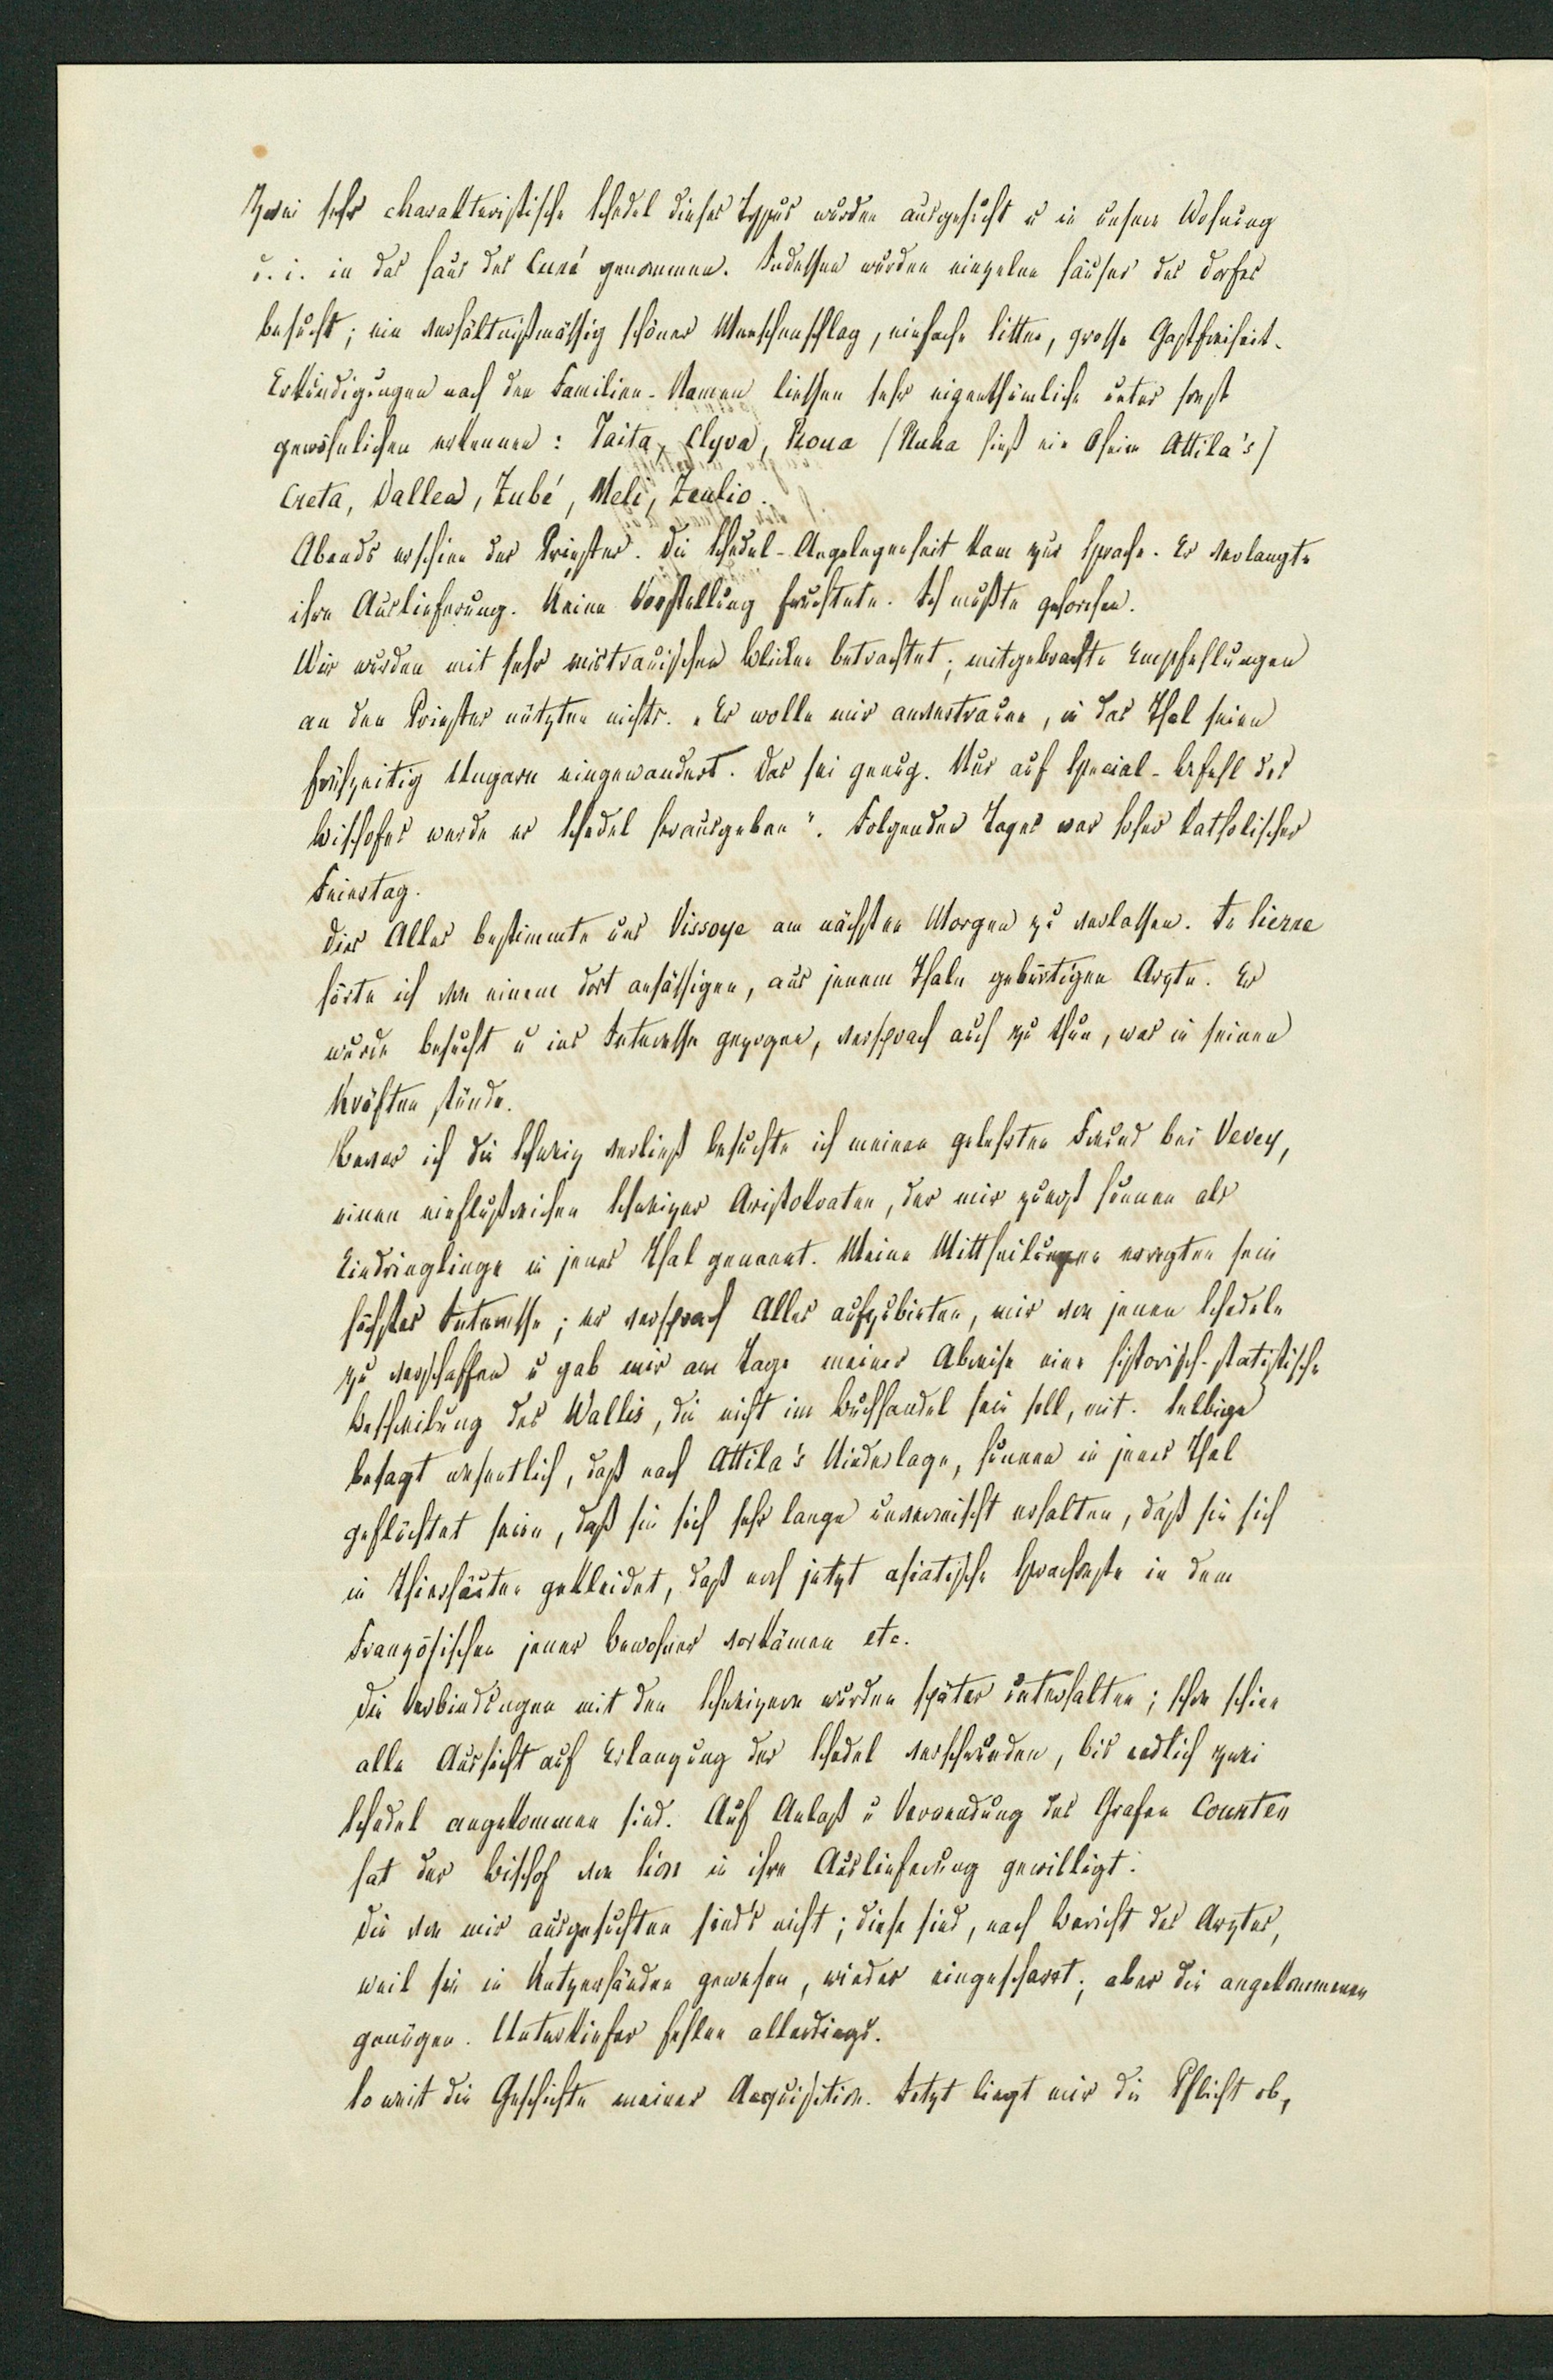 Zwei sehr charakteristische Schedel dieses Typus wurden ausgesucht u in unsere Wohnung
d. i. in das Haus des Curé genommen. Indessen wurden einzelne Häuser des Dorfes
besucht; ein verhältnißmässig schöner Menschenschlag, einfache Sitten, grosse Gastfreiheit.
Erkundigungen nach den Familien-Namen liessen sehr eigenthümliche unter sonst
gewöhnlichen erkennen: Taita, Clyva, Roua (Ruha hieß ein Oheim Attila's)
Creta, Vallea, Zubé, Meli, Zaulio.
Abends erschien der Priester. Die Schedel-Angelegenheit kam zur Sprache. Er verlangte
ihre Auslieferung. Keine Vorstellung fruchtete. Ich mußte gehorchen.
Wir wurden mit sehr mistrauischen Blicken betrachtet; mitgebrachte Empfehlungen
an den Priester nützten nichts. „Er wolle mir anvertrauen, in das Thal seien
frühzeitig Ungarn eingewandert. Das sei genug. Nur auf Special-Befehl des
Bischofes werde er Schedel herausgeben". Folgenden Tages war hoher katholischer
Feiertag.
Dies Alles bestimmte uns Vissoye am nächsten Morgen zu verlassen. In Sierre
hörte ich von einem dort ansässigen, aus jenem Thale gebürtigen Arzte. Er
wurde besucht u ins Interesse gezogen, versprach auch zu thun, was in seinen
Kräften stünde.
Bevor ich die Schweiz verließ besuchte ich meinen gelehrten Freund bei Vevey,
einen einflußreichen Schweizer Aristokraten, der mir zuerst Hunnen als
Eindringlinge in jenes Thal genannt. Meine Mittheilungen erregten sein
höchstes Interesse; er versprach Alles aufzubieten, mir von jenen Schedeln
zu verschaffen u gab mir am Tage meiner Abreise eine historisch-statistische
Beschreibung des Wallis, die nicht im Buchhandel sein soll, mit. Selbige
besagt wesentlich, daß nach Attila's Niederlage, Hunnen in jenes Thal
geflüchtet seien, daß sie sich sehr lange unvermischt erhalten, daß sie sich
in Thierhäuten gekleidet, daß noch jetzt asiatische Sprachreste in dem
Französischen jener Bewohner vorkämen etc.
Die Verbindungen mit den Schweizern wurden später unterhalten; schon schien
alle Aussicht auf Erlangung der Schedel verschwunden, bis endlich zwei
Schedel angekommen sind. Auf Anlaß u Verwendung des Grafen Courten
hat der Bischof von Sion in ihre Auslieferung gewilligt.
Die von mir ausgesuchten sind's nicht; diese sind, nach Bericht des Arztes,
weil sie in Ketzerhänden gewesen, wieder eingescharrt; aber die angekommenen
genügen. Unterkiefer fehlen allerdings.
So weit die Geschichte meiner Acquisition. Jetzt liegt mir die Pflicht ob,